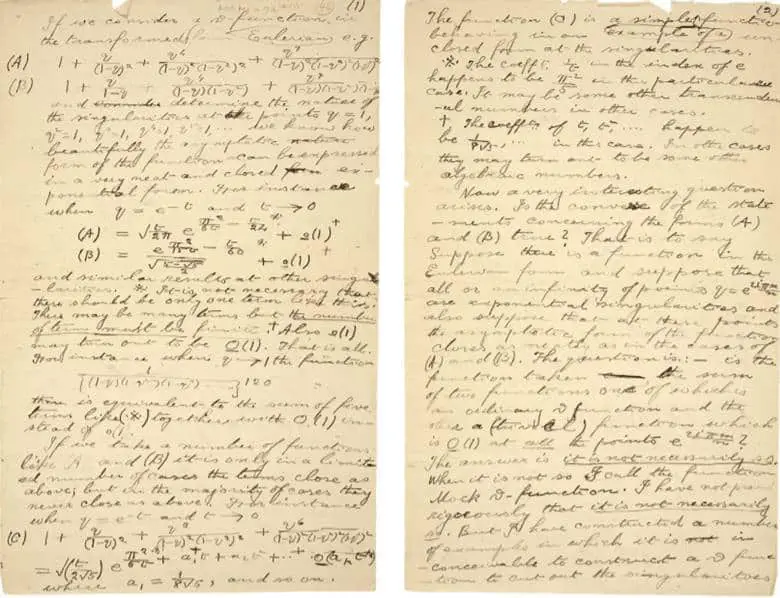 (1)
If we consider a ϑ-function in
the transformed Eulerian e.g.
(A) 1 + q/(1-q)² + q⁴/(1-q)²(1-q²)² + q⁹/(1-q)²(1-q²)²(1-q³)² +
(B) 1 + q/1-q + q⁴/(1-q)(1-q²) + q⁹/(1-q)(1-q²)(1-q³) +
and determine the nature of
the singularities at the points q = 1,
q² = 1, q³ = 1, q⁴ = 1, ... we know how
beautifully the asymptotic
form of the function can be expressed
in a very neat and closed ex-
ponential form. For instance
when q = e^-t and t → 0
(A) = √(t/2π) e^(π²/6t - t/24) + o(1)†
(B) = e^(π²/15t - t/60) / √((5-√5)/2) + o(1)
and similar results at other singu-
-larities. * It is not necessary that
there should be only one term like this.
There may be many terms but the number
of terms must be finite. † Also o(1)
may turn out to be O(1). That is all.
For instance when q → 1 the function
1/{(1-q)(1-q²)(1-q³)...}^120
is equivalent to the sum of five
terms like (*) together with O(1) in-
stead of o(1).
If we take a number of functions
like (A) and (B) it is only in a limit-
ed number of cases the terms close as
above; but in the majority of cases they
never close as above. For instance
when q = e^-t and t → 0
(C) 1 + q/(1-q)² + q³/(1-q)²(1-q²)² + q⁶/(1-q)²(1-q²)²(1-q³)² +
= √(t/2π√5) e^(π²/5t + a₁t + a₂t² + ... + O(a_k t^k))
where a₁ = 1/8√5, and so on.
(2)
The function (C) is a simple function
behaving in an example of a un-
closed form at the singularities.
* The coefft. 1/t in the index of e
happens to be π²/5 in this particular
case. It may be some other transcenden-
-tal numbers in other cases.
† The coeffts of t, t², .... happen to
be 1/8√5, ... in this case. In other cases
they may turn out to be some other
algebraic numbers.
Now a very interesting question
arises. Is the converse of the state-
-ments concerning the forms (A)
and (B) true? That is to say
Suppose there is a function in the
Eulerian form and suppose that
all or an infinity of points q = e^(2iπm/n)
are exponential singularities and
also suppose that at these points
the asymptotic form of the function
closes as neatly as in the cases of
(A) and (B). The question is: – is the
function taken the sum
of two functions one of which is
an ordinary ϑ function and the
other a (trivial) function which
is O(1) at all the points e^(2iπm/n)?
The answer is it is not necessarily so.
When it is not so I call the function
Mock ϑ-function. I have not proved
rigorously that it is not necessarily
so. But I have constructed a number
of examples in which it is
-conceivable to construct a ϑ func-
-tion to cut out the singularities